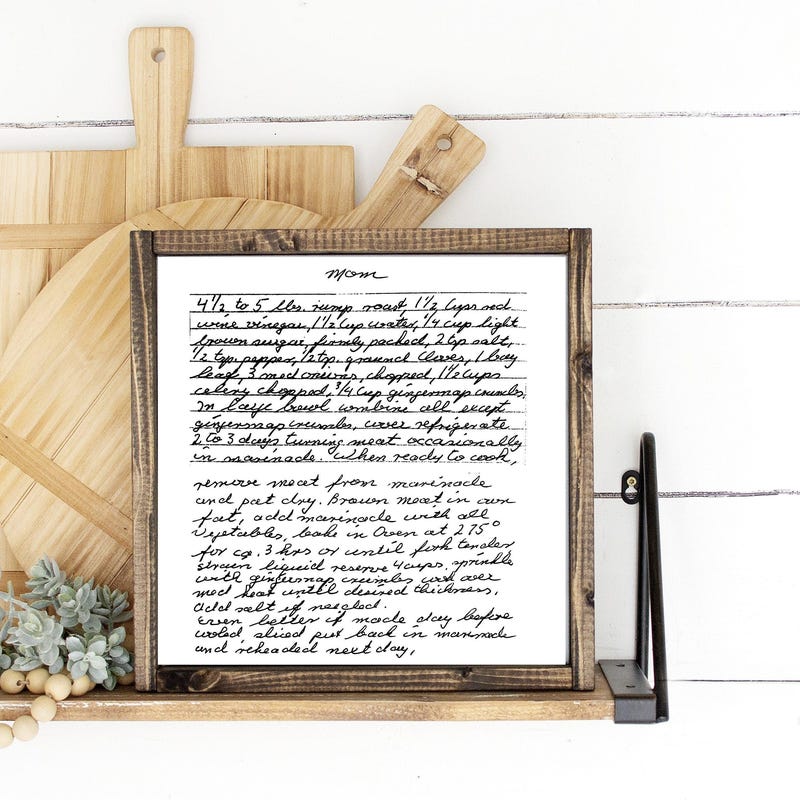 Mom
4 1/2 to 5 lbs. rump roast, 1 1/2 Cups red
wine vinegar, 1 1/2 Cup water, 1/4 cup light
brown sugar, firmly packed, 2 tsp salt,
1/2 tsp. pepper, 1/2 tsp. ground Cloves, 1 bay
leaf, 3 med onions, chopped, 1 1/2 Cups
celery chopped, 3/4 Cup gingersnap crumbs,
In large bowl combine all except
gingersnap crumbs, cover refrigerate
2 to 3 days turning meat occasionally
in marinade. When ready to cook,
remove meat from marinade
and pat dry. Brown meat in own
fat, add marinade with all
vegetables, bake in Oven at 275°
for ca. 3 hrs or until fork tender,
strain liquid reserve 4 cups. sprinkle
with gingersnap crumbs cook over
med heat until desired thickness,
add salt if needed.
Even better if made day before
cooled sliced put back in marinade
and reheaded next day,